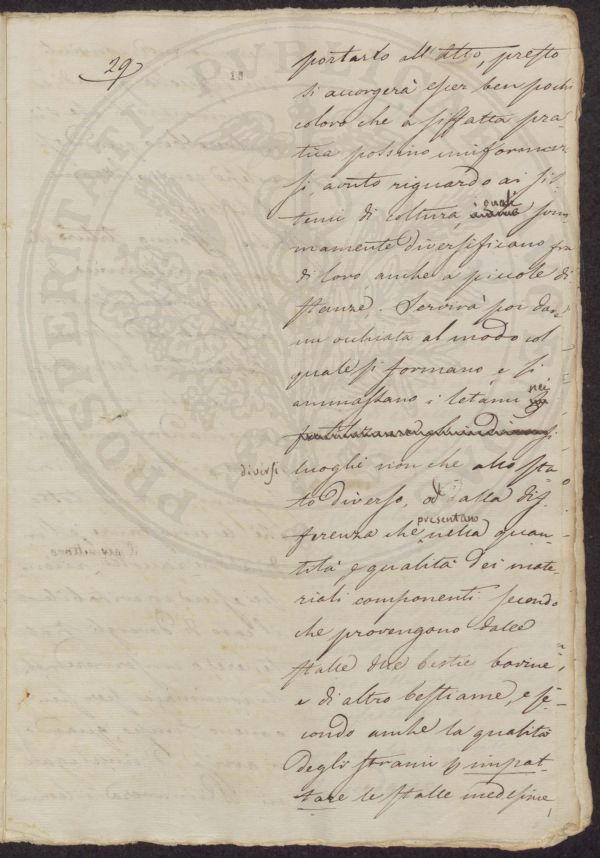 29
18
portarlo all'Atto, presto
si accorgerà esser ben pochi
coloro che a siffatta pra-
tica possino uniformar-
si avuto riguardo ai si-
stemi di coltura, quali som-
mamente diversificano fra
di loro anche a piccole di-
stanze. Servirà poi dare
un'occhiata al modo col
quale si formano, e si
ammassano i letami nei
diversi
luoghi non che allo sta-
to diverso, ed alla dif-
ferenza che presentano nella quan-
tità e qualità dei mate-
riali componenti secondo
che provengono dalle
stalle delle bestie bovine,
e di altro bestiame, e se-
condo anche la qualità
degli strami p impat-
tare le stalle medesime,
PROSPERITATI PUBLICAE